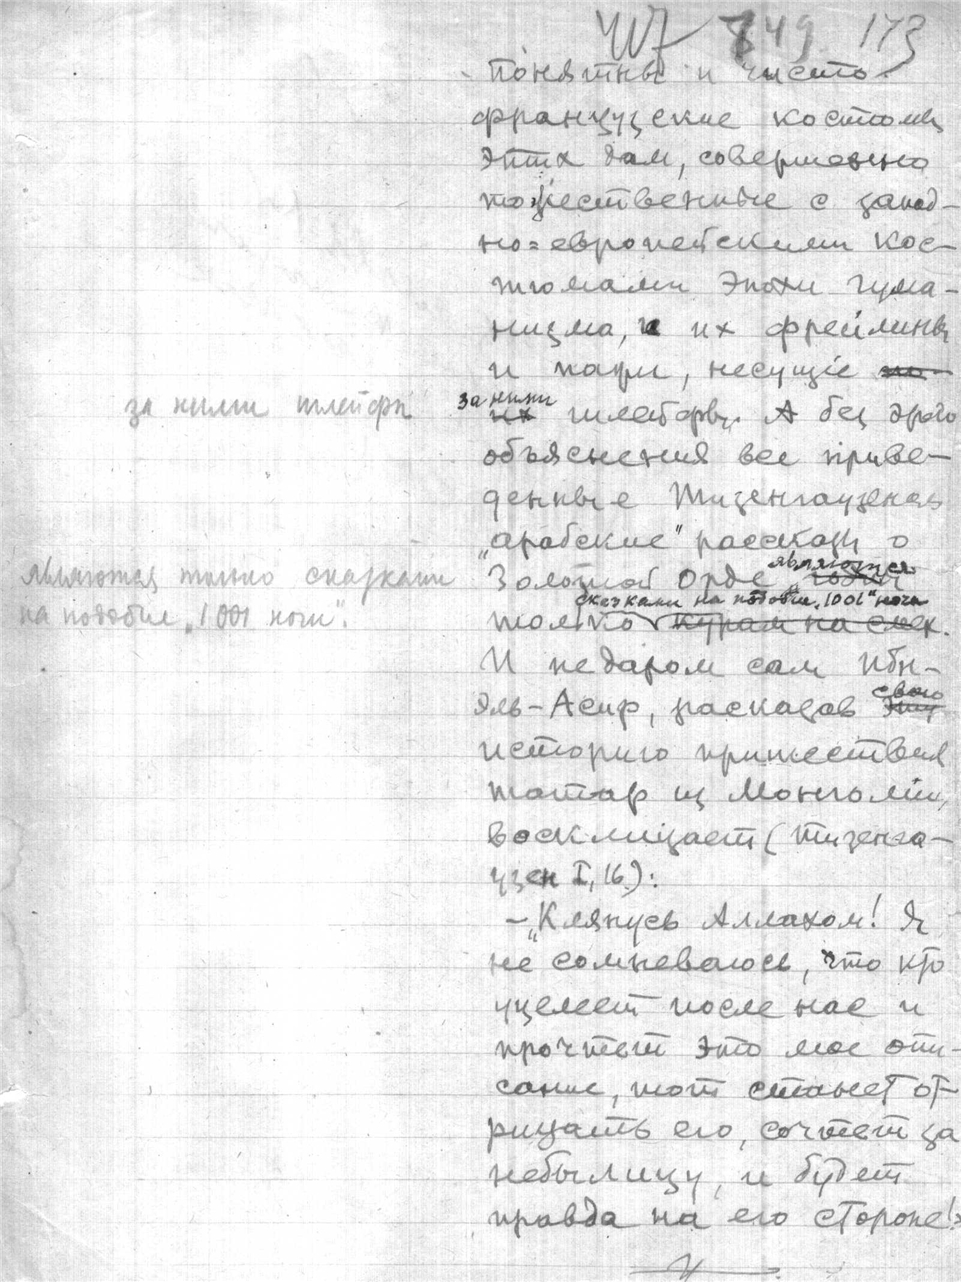 849. 173
понятны и чисто
французские костюмы
этих дам, совершенно
тожественные с запад-
но-европейскими кос-
тюмами эпохи гума-
низма, и их фрейлины
и пажи, несущіе
за ними шлейфы
за ними
их шлейфы. А без этого
объяснения все приве-
денные Тизенгаузеном
„арабские" рассказы о
являются
Золотой Орде
являются только сказками
на подобие „1001 ночи".
сказками на подобие „1001" ночи
только курам на смех.
И недаром сам Ибн-
свою
эль-Асир, расказав эту
историю пришествия
татар из Монголіи,
восклицает (Тизенга-
узен I, 16):
— „Клянусь Аллахом! Я
не сомневаюсь, что кто
уцелеет после нас и
прочтет это мое опи-
сание, тот станет от-
рицать его, сочтет за
небылицу, и будет
правда на его стороне!"